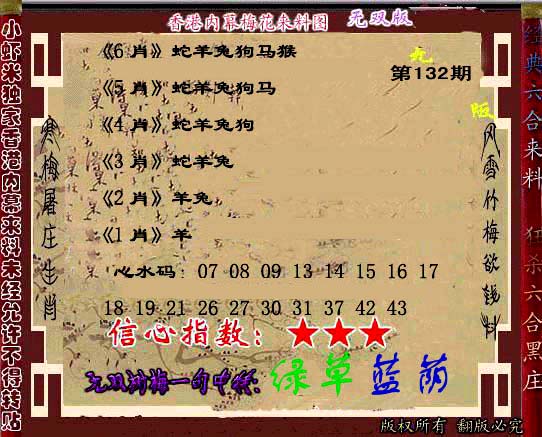 香港内幕梅花来料图 无双版
《6 肖》蛇羊兔狗马猴
第132期
《5 肖》蛇羊兔狗马
《4 肖》蛇羊兔狗
《3 肖》蛇羊兔
《2 肖》羊兔
《1 肖》羊
心水码：07 08 09 13 14 15 16 17
18 19 21 26 27 30 31 37 42 43
信心指数：★★★
一句中特：绿草蓝荫
版权所有 翻版必究
小虾米独家香港内幕来料未经允许不得转贴
寒梅屠庄生肖
风雪竹梅欲钱料
经典六合来料
狂杀六合黑庄
版